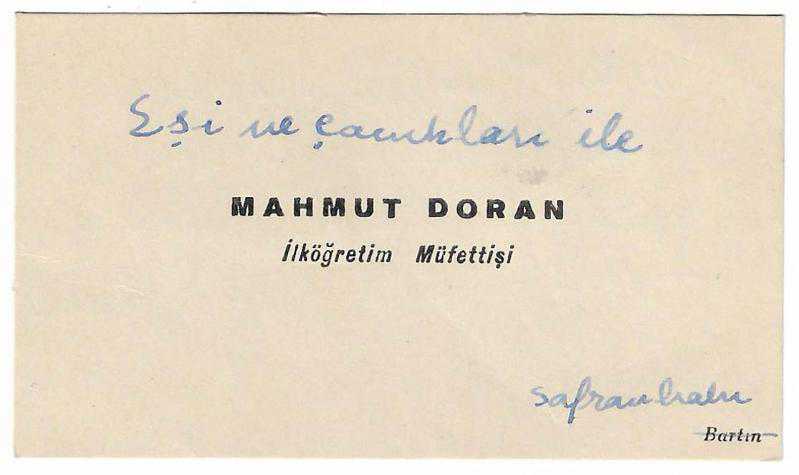 Eşi ve çocukları ile
MAHMUT DORAN
İlköğretim Müfettişi
Safranbolu
Bartın